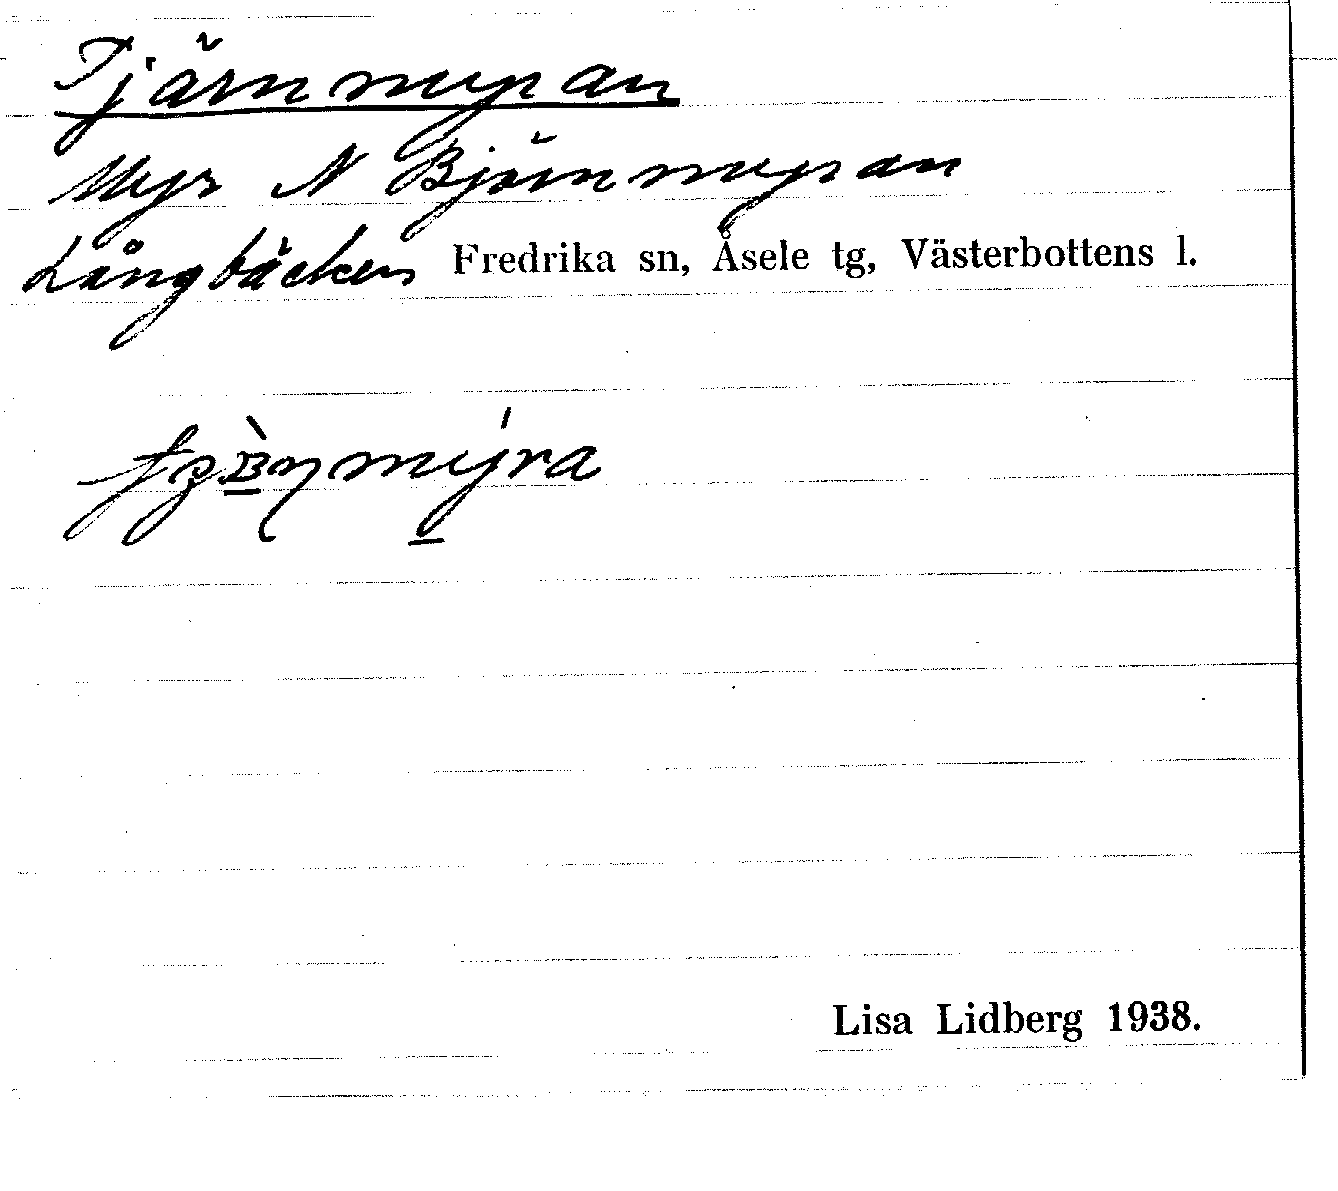 Tjärnmyran
Myr N Björnmyran
Långbäcken Fredrika sn, Åsele tg, Västerbottens l.
Lisa Lidberg 1938.